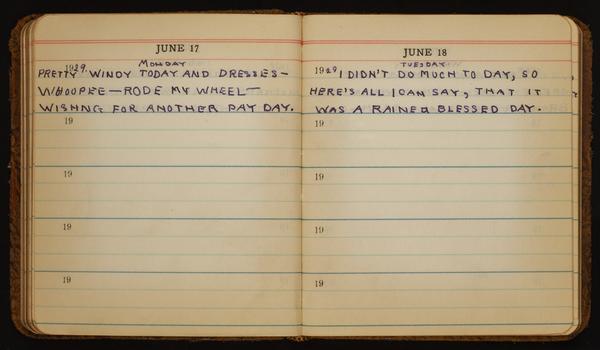 JUNE 17
MONDAY
1929. PRETTY WINDY TODAY AND DRESSES—
WHOOPEE—RODE MY WHEEL—
WISHNG FOR ANOTHER PAY DAY.
19
19
19
19
JUNE 18
TUESDAY
1929 I DIDN'T DO MUCH TO DAY, SO
HERE'S ALL I CAN SAY, THAT IT
WAS A BLESSED DAY.
19
19
19
19